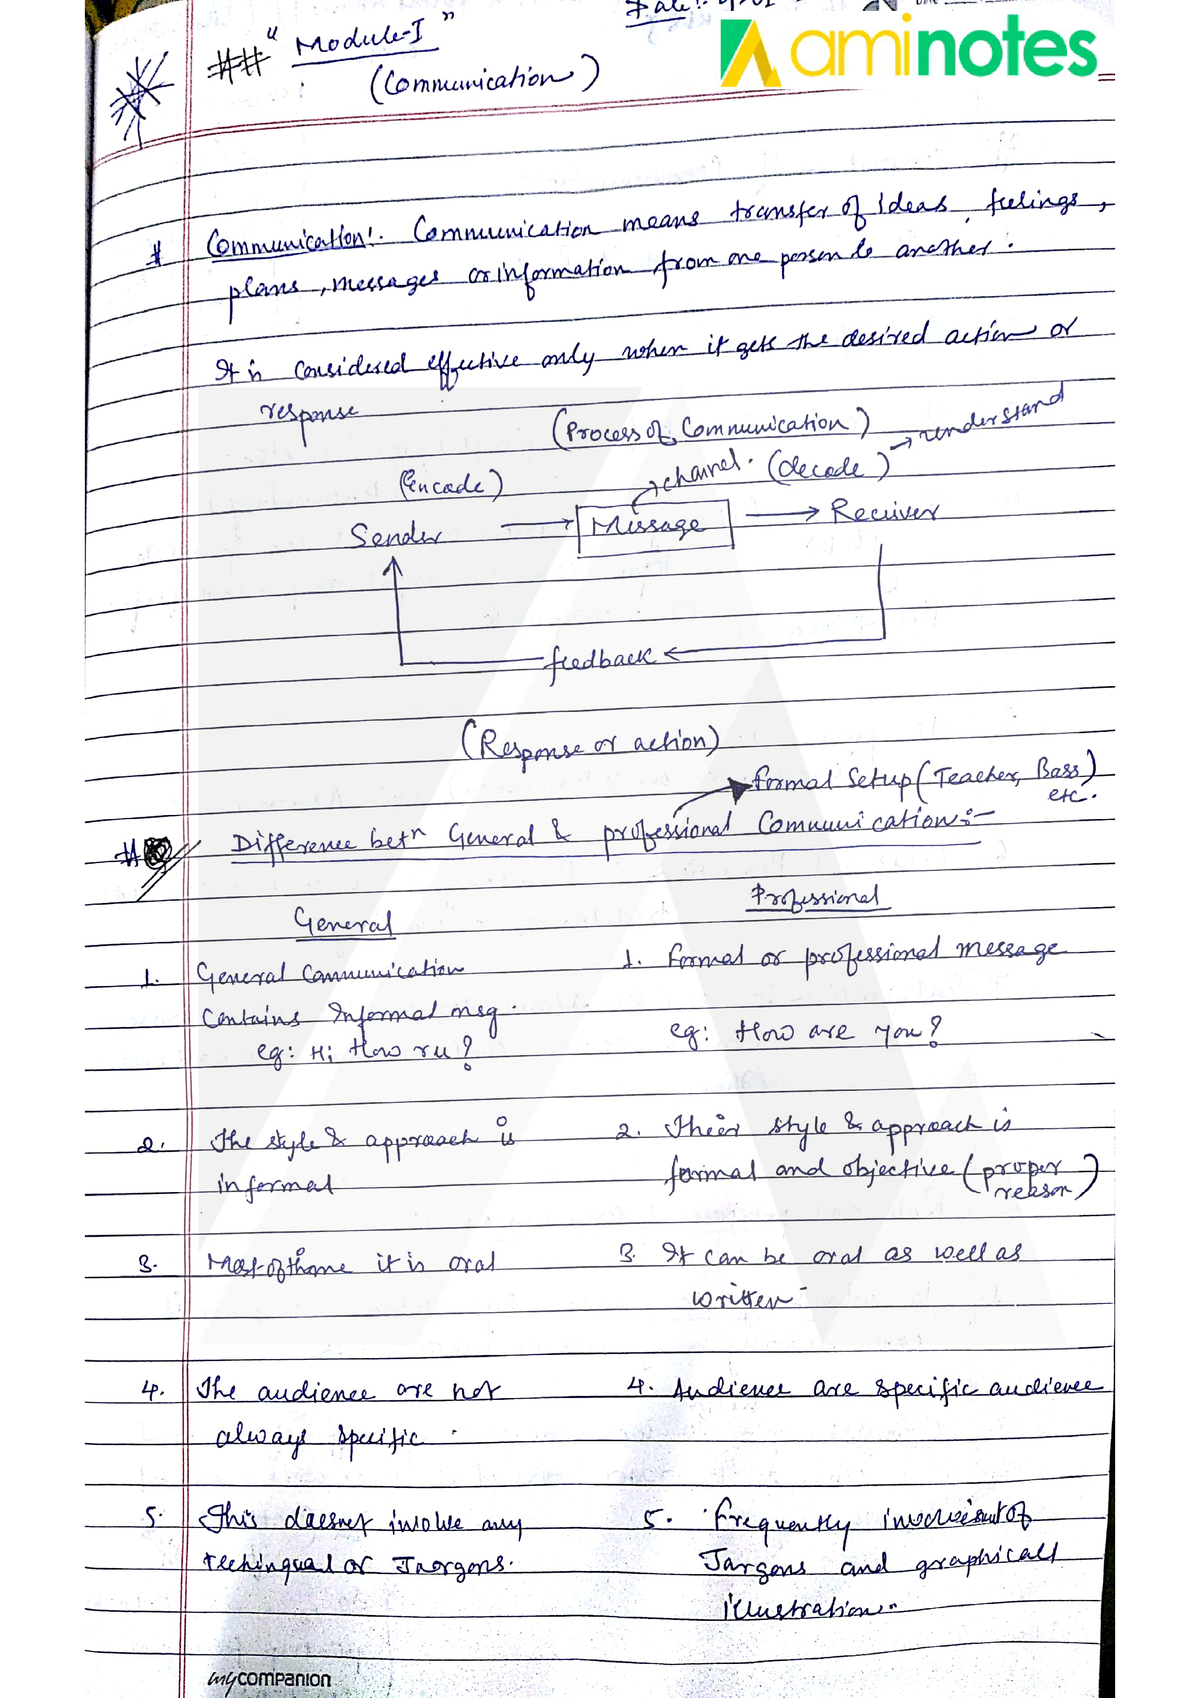 Date:
aminotes
## "Module-I"
(Communication)
# Communication:- Communication means transfer of ideas, feelings,
plans, messages or information from one person to another.
It is considered effective only when it gets the desired action or
response
(Process of Communication)
→ understand
(Encode)
→ channel. (decode)
Sender → Message → Receiver
feedback ←
(Response or action)
formal Setup (Teacher, Boss)
etc.
# Difference betn General & professional Communication:-
General
Professional
1. General Communication
Contains Informal msg.
eg: Hi How r u?
1. Formal or professional message
eg: How are you?
2. The style & approach is
informal
2. Their style & approach is
formal and objective (proper
reason)
3. Most of the time it is oral
3. It can be oral as well as
written-
4. The audience are not
always specific.
4. Audience are specific audience
5. This doesnot involve any
or Jargons.
5. Frequently of
Jargons and graphicall
illustration
mycompanion